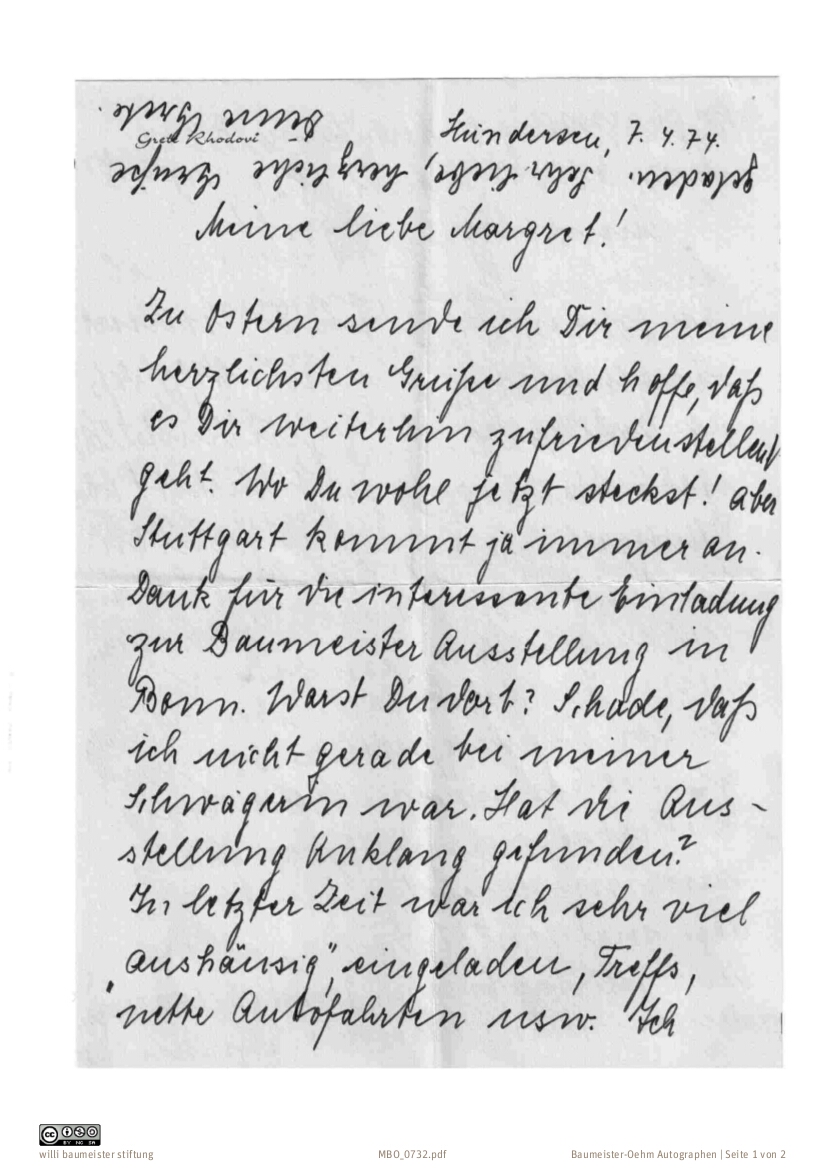 Hindersen, 7. 4. 74.
Meine liebe Margret!
Zu Ostern sende ich Dir meine
herzlichsten Grüße und hoffe, daß
es Dir weiterhin zufriedenstellend
geht. Wo Du wohl jetzt steckst! Aber
Stuttgart kommt ja immer an.
Dank für die interessante Einladung
zur Baumeister Ausstellung in
Bonn. Warst Du dort? Schade, daß
ich nicht gerade bei meiner
Schwägerin war. Hat die Aus-
stellung Anklang gefunden?
In letzter Zeit war ich sehr viel
"aushäusig", eingeladen, Treffs,
nette Autofahrten usw. Ich
geladen. Sehr liebe, herzliche Grüße
Deine Grete
Grete Rhodovi
willi baumeister stiftung
MBO_0732.pdf
Baumeister-Oehm Autographen | Seite 1 von 2
CC BY NC SA